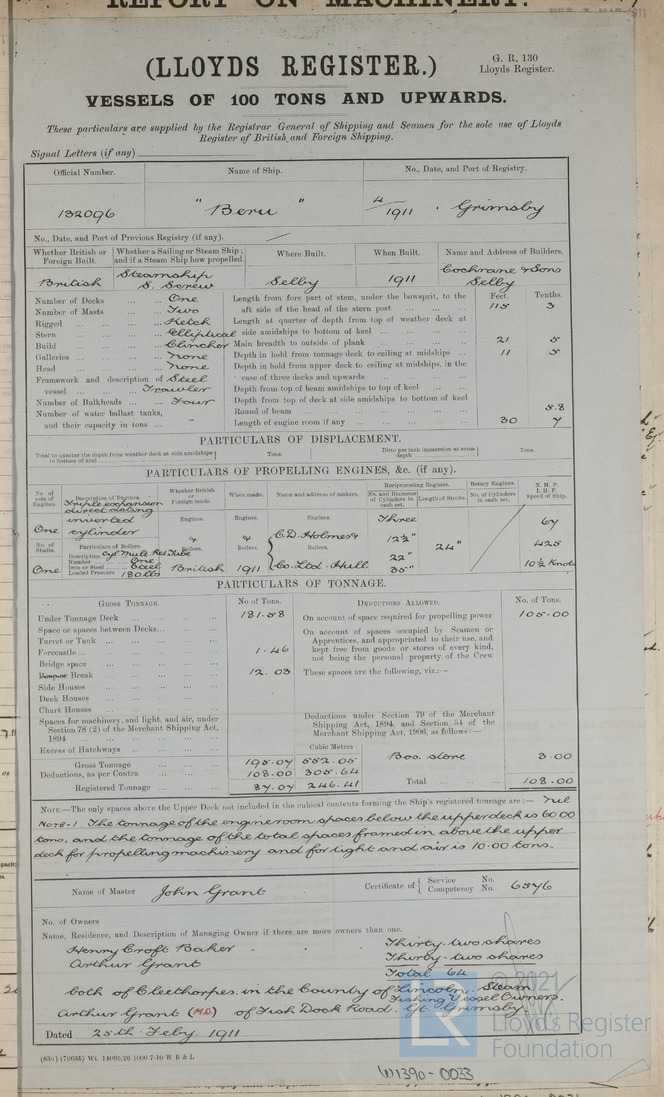 REPORT ON MACHINERY.
G. R. 130
Lloyds Register.
(LLOYDS REGISTER.)
VESSELS OF 100 TONS AND UPWARDS.
These particulars are supplied by the Registrar General of Shipping and Seamen for the sole use of Lloyds
Register of British and Foreign Shipping.
Signal Letters (if any)
Official Number. Name of Ship. No., Date, and Port of Registry.
132096 "Beru" 4/1911 . Grimsby
No., Date, and Port of Previous Registry (if any).
Whether British or Foreign Built. Whether a Sailing or Steam Ship; and if a Steam Ship how propelled. Where Built. When Built. Name and Address of Builders.
British Steamship S. Screw Selby 1911 Cochrane & Sons Selby
Feet. Tenths.
Number of Decks One Length from fore part of stem, under the bowsprit, to the
Number of Masts Two aft side of the head of the stern post 115 3
Rigged Ketch Length at quarter of depth from top of weather deck at
Stern Elliptical side amidships to bottom of keel
Build Clincher Main breadth to outside of plank 21 5
Galleries None Depth in hold from tonnage deck to ceiling at midships 11 5
Head None Depth in hold from upper deck to ceiling at midships, in the
Framework and description of Steel case of three decks and upwards
vessel Trawler Depth from top of beam amidships to top of keel
Number of Bulkheads Four Depth from top of deck at side amidships to bottom of keel
Number of water ballast tanks, Round of beam 5.8
and their capacity in tons – Length of engine room if any 30 7
PARTICULARS OF DISPLACEMENT.
Total to quarter the depth from weather deck at side amidships to bottom of keel Tons. Ditto per inch immersion at same depth Tons.
PARTICULARS OF PROPELLING ENGINES, &c. (if any).
No. of sets of Engines. Description of Engines. Whether British or Foreign made. When made. Name and address of makers. Reciprocating Engines. Rotary Engines. N. H. P.
No. and Diameter of Cylinders in each set. Length of Stroke. No. of Cylinders in each set. I. H. P. Speed of Ship.
Triple expansion
direct acting
inverted Engines. Engines. Engines. Three 67
One cylinder
No. of Shafts. Particulars of Boilers. Boilers. & Boilers. & C.D. Holmes & Boilers. 12½" 24" 425
Description Cyl Mult. Ret Tube 22"
Number One
Iron or Steel Steel
One Loaded Pressure 180 lbs British 1911 Co. Ltd. Hull 35" 10½ Knots
PARTICULARS OF TONNAGE.
GROSS TONNAGE. No. of Tons. DEDUCTIONS ALLOWED. No. of Tons.
Under Tonnage Deck 181.58 On account of space required for propelling power 105.00
Space or spaces between Decks On account of spaces occupied by Seamen or
Turret or Tank Apprentices, and appropriated to their use, and
Forecastle 1.46 kept free from goods or stores of every kind,
Bridge space not being the personal property of the Crew
Break 12.03 These spaces are the following, viz.:—
Side Houses
Deck Houses
Chart Houses
Spaces for machinery, and light, and air, under Deductions under Section 79 of the Merchant
Section 78 (2) of the Merchant Shipping Act, Shipping Act, 1894, and Section 54 of the
1894 Merchant Shipping Act, 1906, as follows:—
Excess of Hatchways Cubic Metres
Gross Tonnage 195.07 552.05 Boo. store 3.00
Deductions, as per Contra 108.00 305.64
Registered Tonnage 87.07 246.41 Total 108.00
NOTE.—The only spaces above the Upper Deck not included in the cubical contents forming the Ship's registered tonnage are:— nil
Note-1. The tonnage of the engineroom spaces below the upper deck is 60.00
tons, and the tonnage of the total spaces framed in above the upper
deck for propelling machinery and for light and air is 10.00 tons.
Name of Master John Grant Certificate of Service No. Competency No. 6576
No. of Owners
Name, Residence, and Description of Managing Owner if there are more owners than one.
Henry Croft Baker . . Thirty-two shares
Arthur Grant Thirty-two shares
Total 64
both of Cleethorpes in the County of Lincoln. Steam
Fishing Vessel Owners.
Arthur Grant (M.O.) of Fish Dock Road, Gt. Grimsby.
Dated 25th Feby. 1911
© 2021
Lloyd's Register
Foundation
W1390-0033